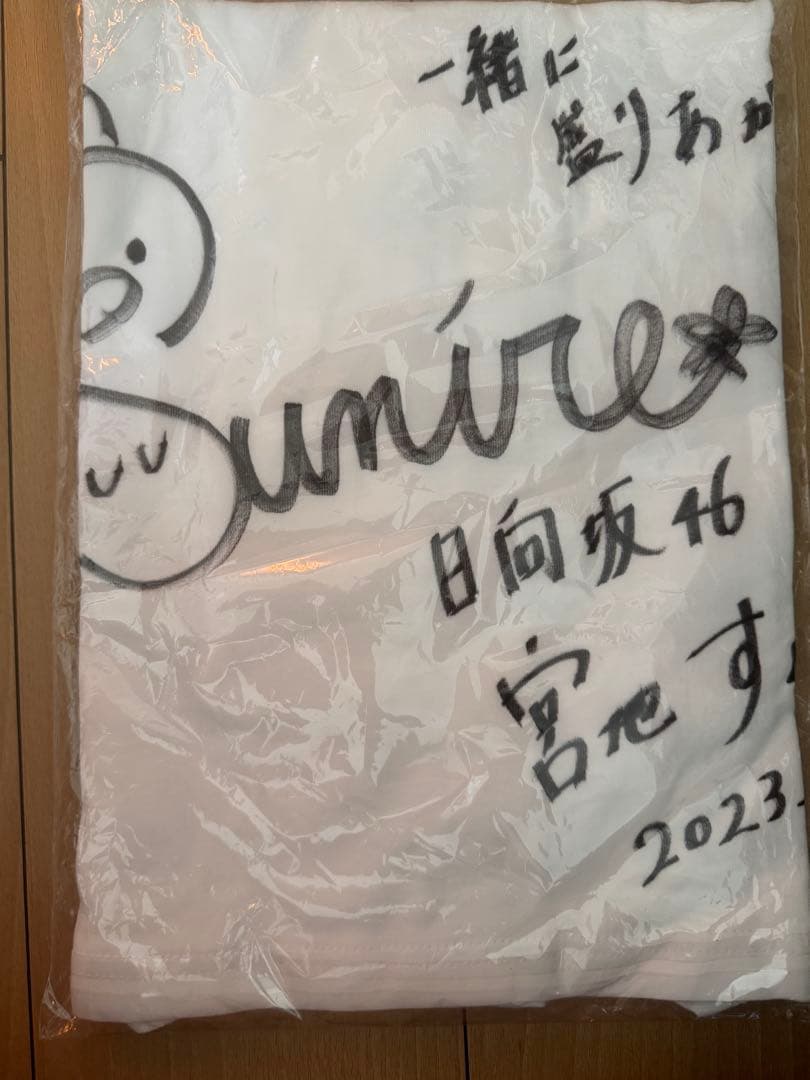 一緒に
盛りあが
Sumire
日向坂46
宮地す
2023.